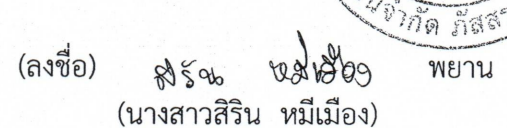 นจำกัด ภัสส
(ลงชื่อ) สิริน หมีเมือง พยาน
(นางสาวสิริน หมีเมือง)